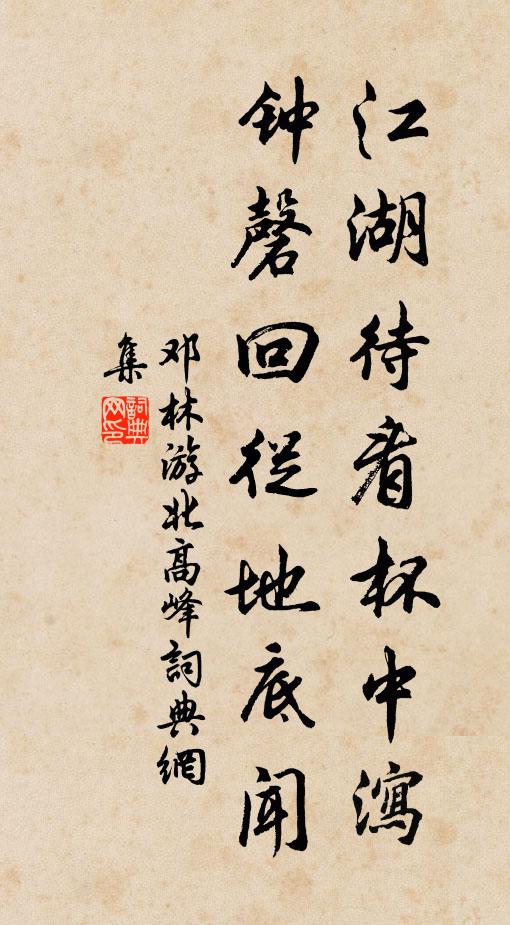 江湖待看杯中瀉
钟磬回従地底闻
邓林游北高峰詞典網
集
詞典网印